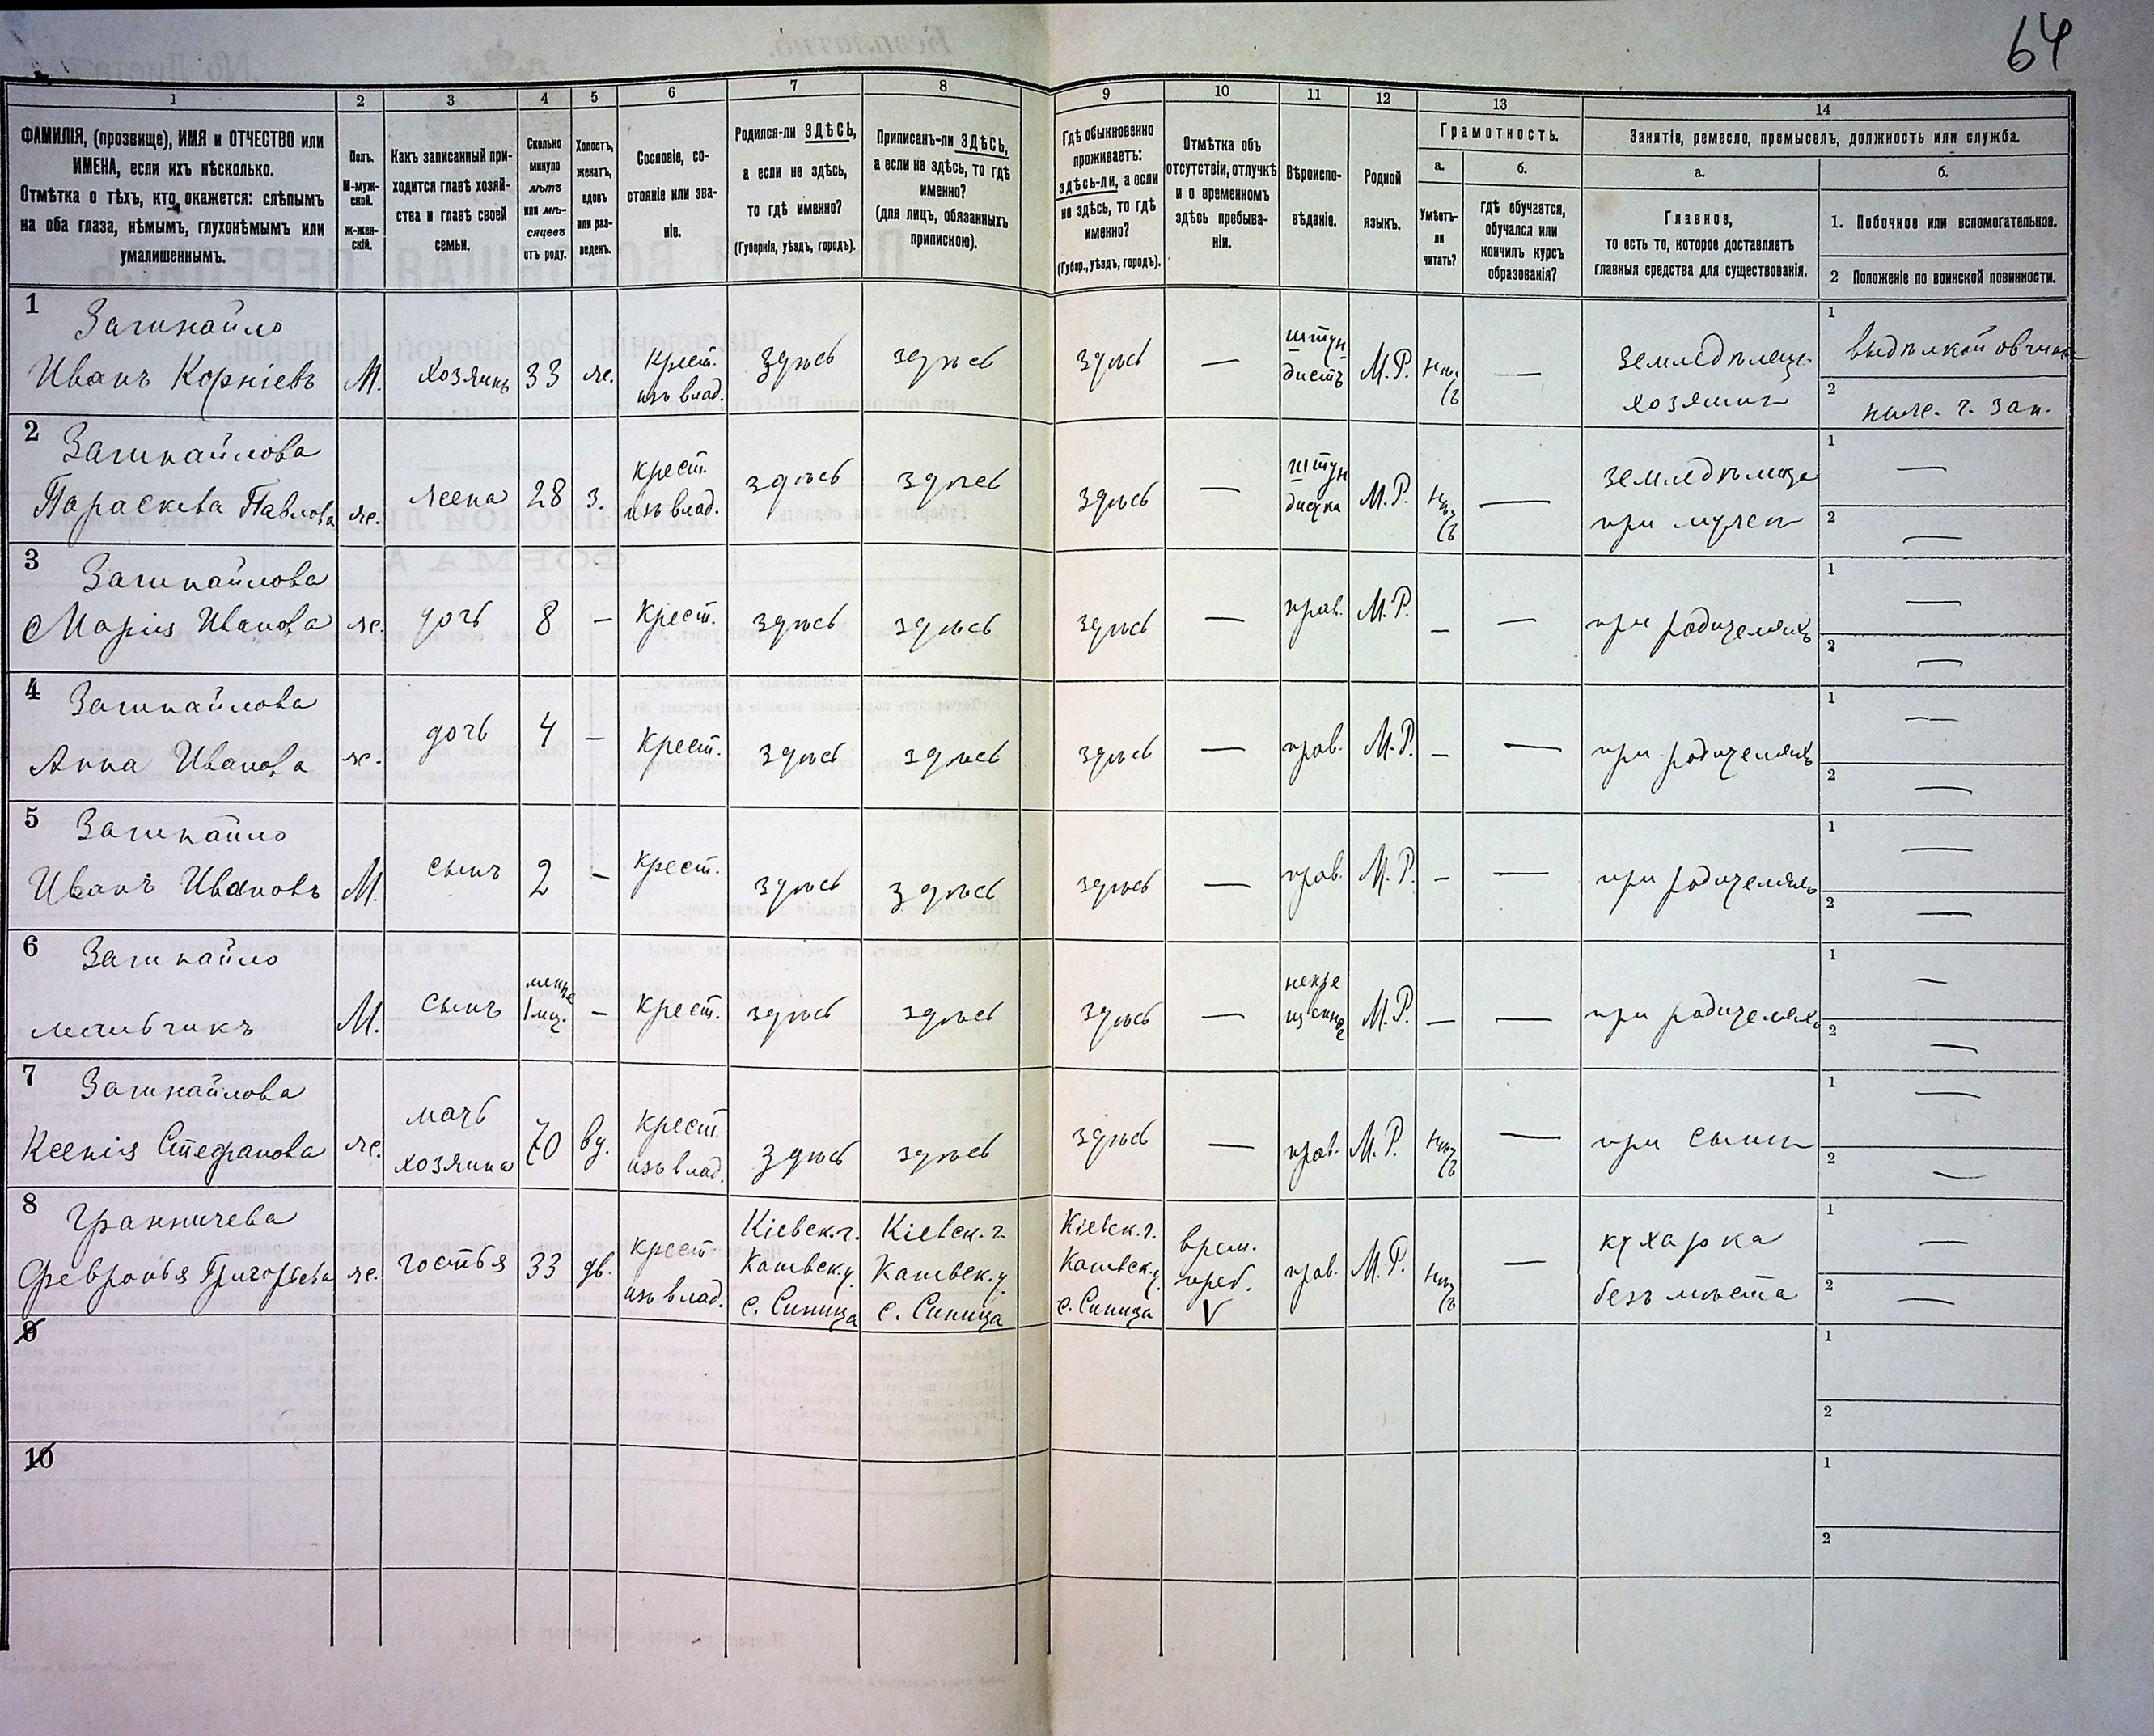 64
1
2
3
4
5
6
7
8
9
10
11
12
13
14
ФАМИЛІЯ, (прозвище), ИМЯ и ОТЧЕСТВО или
ИМЕНА, если ихъ нѣсколько.
Отмѣтка о тѣхъ, кто окажется: слѣпымъ
на оба глаза, нѣмымъ, глухонѣмымъ или
умалишеннымъ.
Полъ.
М-муж-
ской.
ж-жен-
скій.
Какъ записанный при-
ходится главѣ хозяй-
ства и главѣ своей
семьи.
Сколько
минуло
лѣтъ
или мѣ-
сяцевъ
отъ роду.
Холостъ,
женатъ,
вдовъ
или раз-
веденъ.
Сословіе, со-
стояніе или зва-
ніе.
Родился-ли ЗДѢСЬ,
а если не здѣсь,
то гдѣ именно?
(Губернія, уѣздъ, городъ).
Приписанъ-ли ЗДѢСЬ,
а если не здѣсь, то гдѣ
именно?
(для лицъ, обязанныхъ
припискою).
Гдѣ обыкновенно
проживаетъ:
здѣсь-ли, а если
не здѣсь, то гдѣ
именно?
(Губер., уѣздъ, городъ).
Отмѣтка объ
отсутствіи, отлучкѣ
и о временномъ
здѣсь пребыва-
ніи.
Вѣроиспо-
вѣданіе.
Родной
языкъ.
Грамотность.
а.
Умѣетъ-
ли
читать?
б.
гдѣ обучается,
обучался или
кончилъ курсъ
образованія?
Занятія, ремесло, промыселъ, должность или служба.
а.
Главное,
то есть то, которое доставляетъ
главныя средства для существованія.
б.
1. Побочное или вспомогательное.
2 Положеніе по воинской повинности.
1
Загинайло
Иванъ Корніевъ
М.
хозяинъ
33
ж.
крест.
изъ влад.
здѣсь
здѣсь
здѣсь
—
штун
дистъ
М.Р.
нѣтъ
—
земледѣлецъ
хозяинъ
1
выдѣлкой овчинъ
2
2
Загинайлова
Параскева Павлова
ж.
жена
28
з.
крест.
изъ влад.
здѣсь
здѣсь
здѣсь
—
штун
дистка
М.Р.
нѣтъ
—
земледѣлица
при мужѣ
1
—
2
—
3
Загинайлова
Марія Иванова
ж.
дочь
8
–
крест.
здѣсь
здѣсь
здѣсь
—
прав.
М.Р.
–
—
при родителяхъ
1
—
2
—
4
Загинайлова
Анна Иванова
ж.
дочь
4
–
крест.
здѣсь
здѣсь
здѣсь
—
прав.
М.Р.
–
—
при родителяхъ
1
—
2
—
5
Загинайло
Иванъ Ивановъ
М.
сынъ
2
–
крест.
здѣсь
здѣсь
здѣсь
—
прав.
М.Р.
–
—
при родителяхъ
1
—
2
—
6
Загинайло
мальчикъ
М.
сынъ
менѣе
1 мѣс.
–
крест.
здѣсь
здѣсь
здѣсь
—
некре
щеный
М.Р.
–
—
при родителяхъ
1
—
2
—
7
Загинайлова
Ксенія Стефанова
ж.
мать
хозяина
70
вд.
крест.
изъ влад.
здѣсь
здѣсь
здѣсь
—
прав.
М.Р.
нѣтъ
—
при сынѣ
1
—
2
—
8
Февронья Григорьева
ж.
гостья
33
дв.
крест.
изъ влад.
Кіевск. г.
Каневск. у.
с. Синица
Кіевск. г.
Каневск. у.
с. Синица
Кіевск. г.
Каневск. у.
с. Синица
врем.
преб.
V
прав.
М.Р.
нѣтъ
—
кухарка
безъ мѣста
1
—
2
—
9
1
2
10
1
2